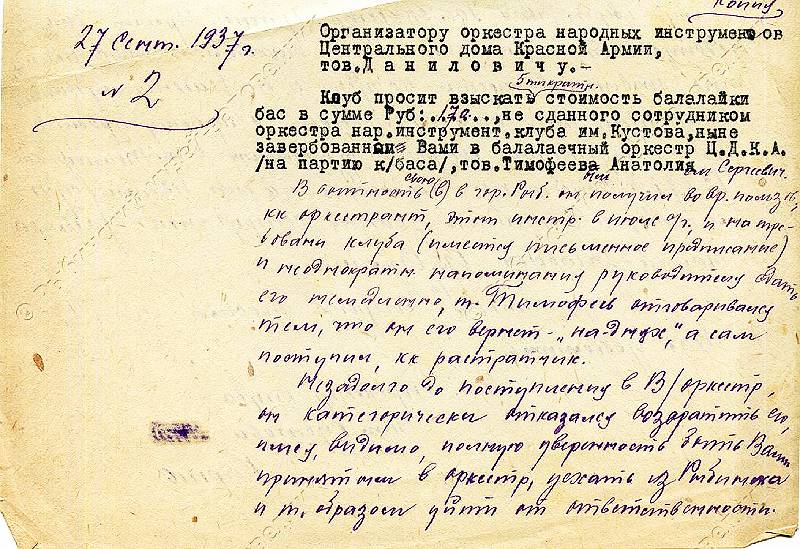 Копию
27 Сент. 1937 г.
№ 2
Организатору оркестра народных инструментов
Центрального дома Красной Армии,
тов. Д а н и л о в и ч у . –
5тикратн.
Клуб просит взыскать стоимость балалайки
бас в сумме Руб: .172..., не сданного сотрудником
оркестра нар.инструмент.клуба им.Кустова,ныне
завербованный Вами в балалаечный оркестр Ц.Д.К.А.
/на партию к/баса/,тов.Тимофеева Анатолия Сергеевич.
В бытность свою (в) в гор. Рыб. он получил во вр. польз.,
кк оркестрант, этот инстр. в июле с/г. и на тре-
бовани клуба (имеется письменное предписание)
и неоднократн. напоминания руководителя сдать
его немедленно, т. Тимофеев отговаривался
тем, что он его вернет – „на-днях", а сам
поступил, кк растратчик.
Незадолго до поступления в В/оркестр,
он категорически отказался возвратить его,
имея, видимо, полную уверенность быть Вами
принятым в оркестр, уехать из Рыбинска
и т. образом уйти от ответственности.